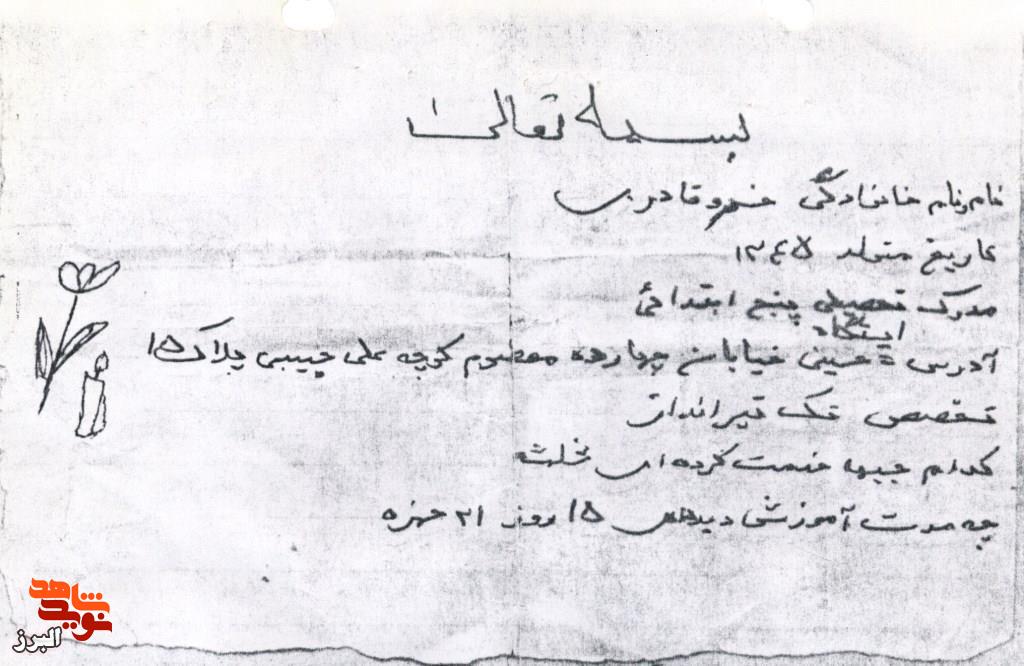 بسمه تعالی
نام و نام خانوادگی خسرو قادری
تاریخ متولد ۱۳۴۵
مدرک تحصیلی پنج ابتدائی
ایستگاه
آدرس حسینی خیابان چهارده معصوم کوچه علی حبیبی پلاک ۱۵
تخصص تک تیرانداز
کدام جبهه خدمت کرده ای
چه مدت آموزش دیدهای ۱۵ روز ۲۱ حمزه
شاهد
نوید
البرز